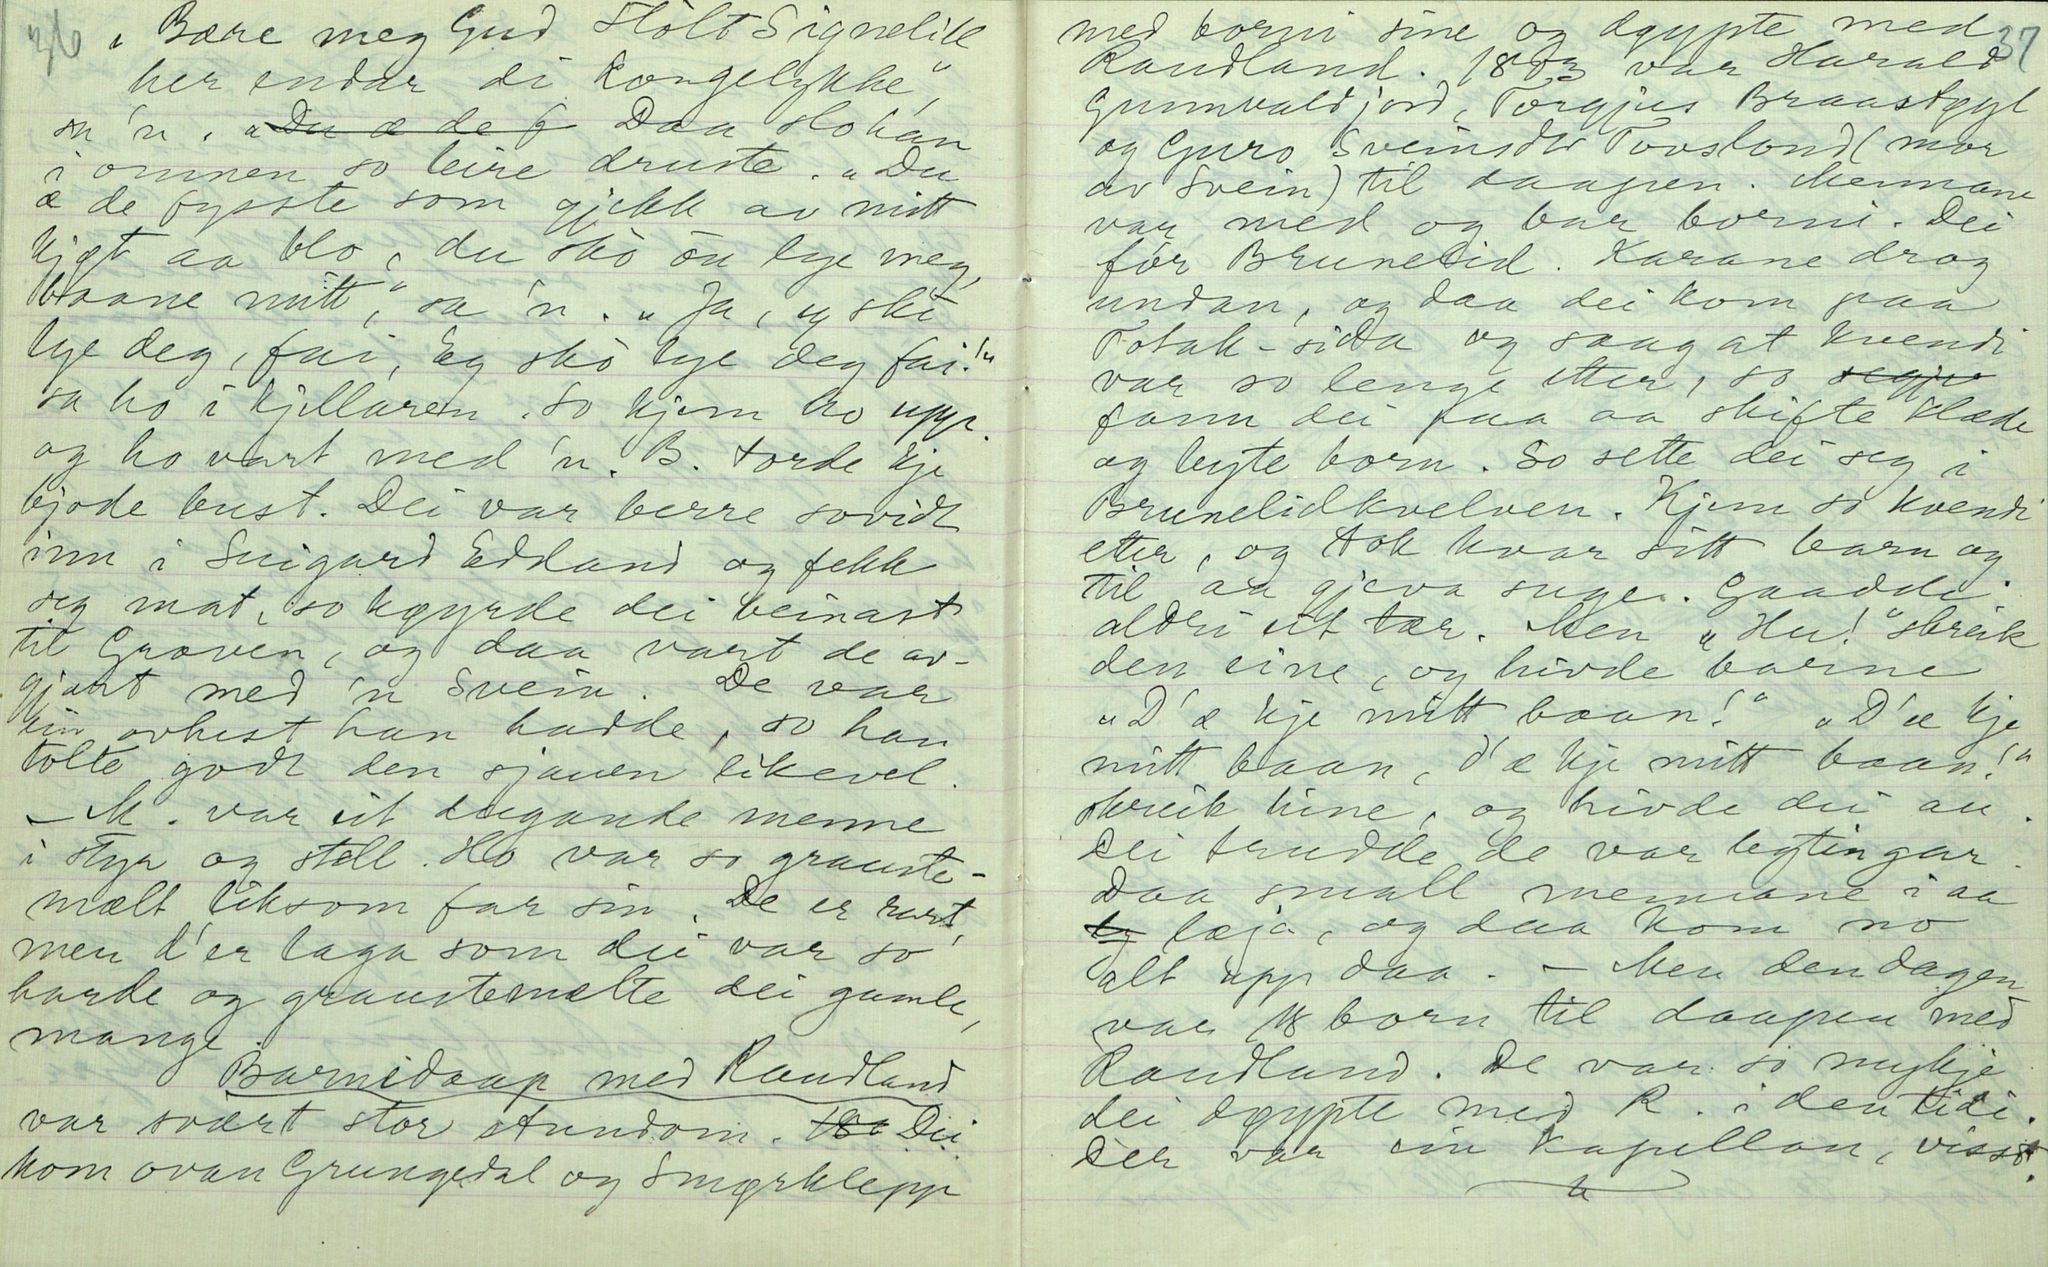 36
„Bære meg Gud Stolt Signelill
her endar di Kongelykke",
sa 'n. „Du æ de f Daa slo han
i omnen so leire druste. „Du
æ de fysste som gjekk av mitt
kjøt aa blo, du sko òu lye meg,
baane mitt," sa 'n. „Ja, eg sko
lye deg, fai, Eg sko lye deg fai!"
sa ho i kjellaren. So kjem ho upp.
og ho vart med 'n. B. torde kje
bjode bust. Dei var berre sovidt
inn i Suigard Edland og fekk
seg mat, so køyrde dei beinast
til Graven, og daa vart de av-
gjort med 'n Svein. De var
ein avhest han hadde, so han
tolte godt den sjauen likevel.
– M. var eit dugande menne
i styr og stell. Ho var so grauste-
mælt liksom far sin. De er rart,
men d'er laga som dei var so
harde og graustemælte dei gamle,
mange.
Barnedaap med Raudland
var svært stor stundom. 180 Dei
kom ovan Grungedal og Smørklepp
37
med borni sine og døypte med
Raudland. 1803 var Harald
Gunnvaldjord, Torgjus Braastøyl
og Guro Sveinsdtr Tovslond (mor
av Svein) til daapen. Mennane
var med og bar borni. Dei
for Brunelid. Karane drog
undan, og daa dei kom paa
Totak-sida og saag at kvendi
var so lenge etter, so segje
fann dei paa aa skifte klæde
og byte born. So sette dei seg i
Brunelidkvelven. Kjem so kvendi
etter, og tok kvar sitt barn og
til aa gjeva suge. Gaadde
aldri eit tær. Men „Hu!" skreik
den eine, og hivde barne
„D'æ kje mitt baan!" „D'æ kje
mitt baan, d'æ kje mitt baan!"
skreik hine, og hivde dei au.
Dei trudde de var bytingar.
Daa small mennane i aa
ly læja, og daa kom no
alt upp daa. – Men den dagen
var 18 born til daapen med
Raudland. De var so mykje
dei døypte med R. i den tidi.
Der var ein kapellan, visst.